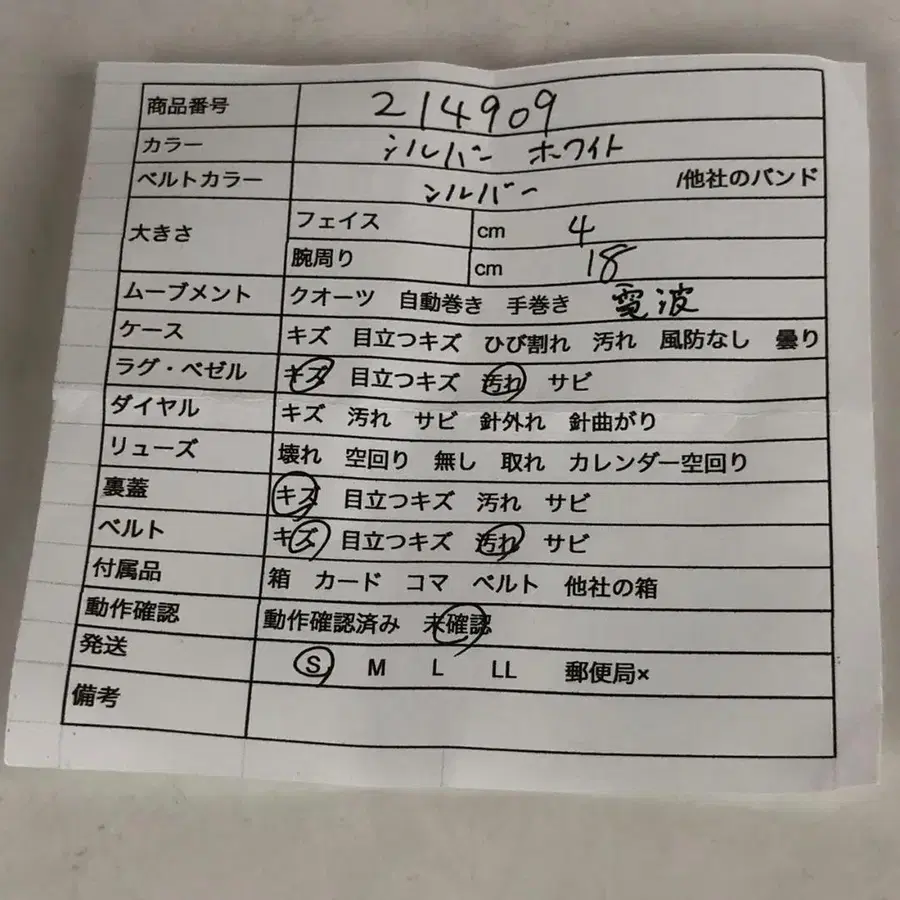 商品番号 214909
カラー シルバー ホワイト
ベルトカラー シルバー /他社のバンド
大きさ フェイス cm 4
腕周り cm 18
ムーブメント クオーツ 自動巻き 手巻き 電波
ケース キズ 目立つキズ ひび割れ 汚れ 風防なし 曇り
ラグ・ベゼル キズ 目立つキズ 汚れ サビ
ダイヤル キズ 汚れ サビ 針外れ 針曲がり
リューズ 壊れ 空回り 無し 取れ カレンダー空回り
裏蓋 キズ 目立つキズ 汚れ サビ
ベルト キズ 目立つキズ 汚れ サビ
付属品 箱 カード コマ ベルト 他社の箱
動作確認 動作確認済み 未確認
発送 S M L LL 郵便局×
備考